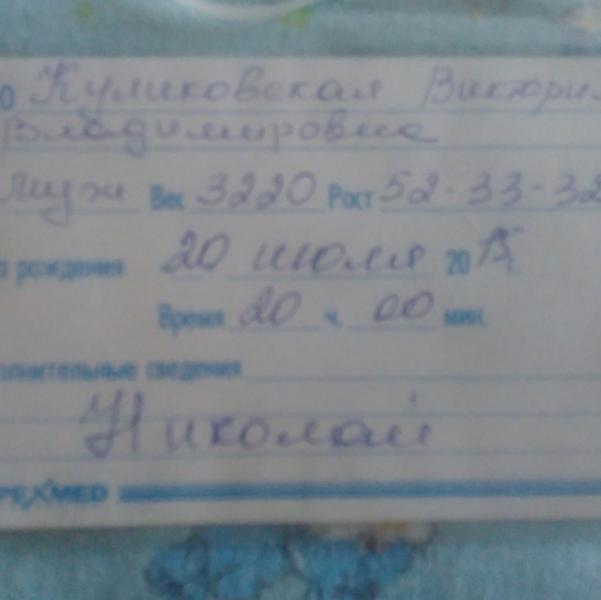 О Куликовская Виктория
Владимировна
муж Вес 3220 Рост 52-33-32
рождения 20 июля 2015 г.
Время 20 ч. 00 мин.
олнительные сведения
Николай
PEXMED